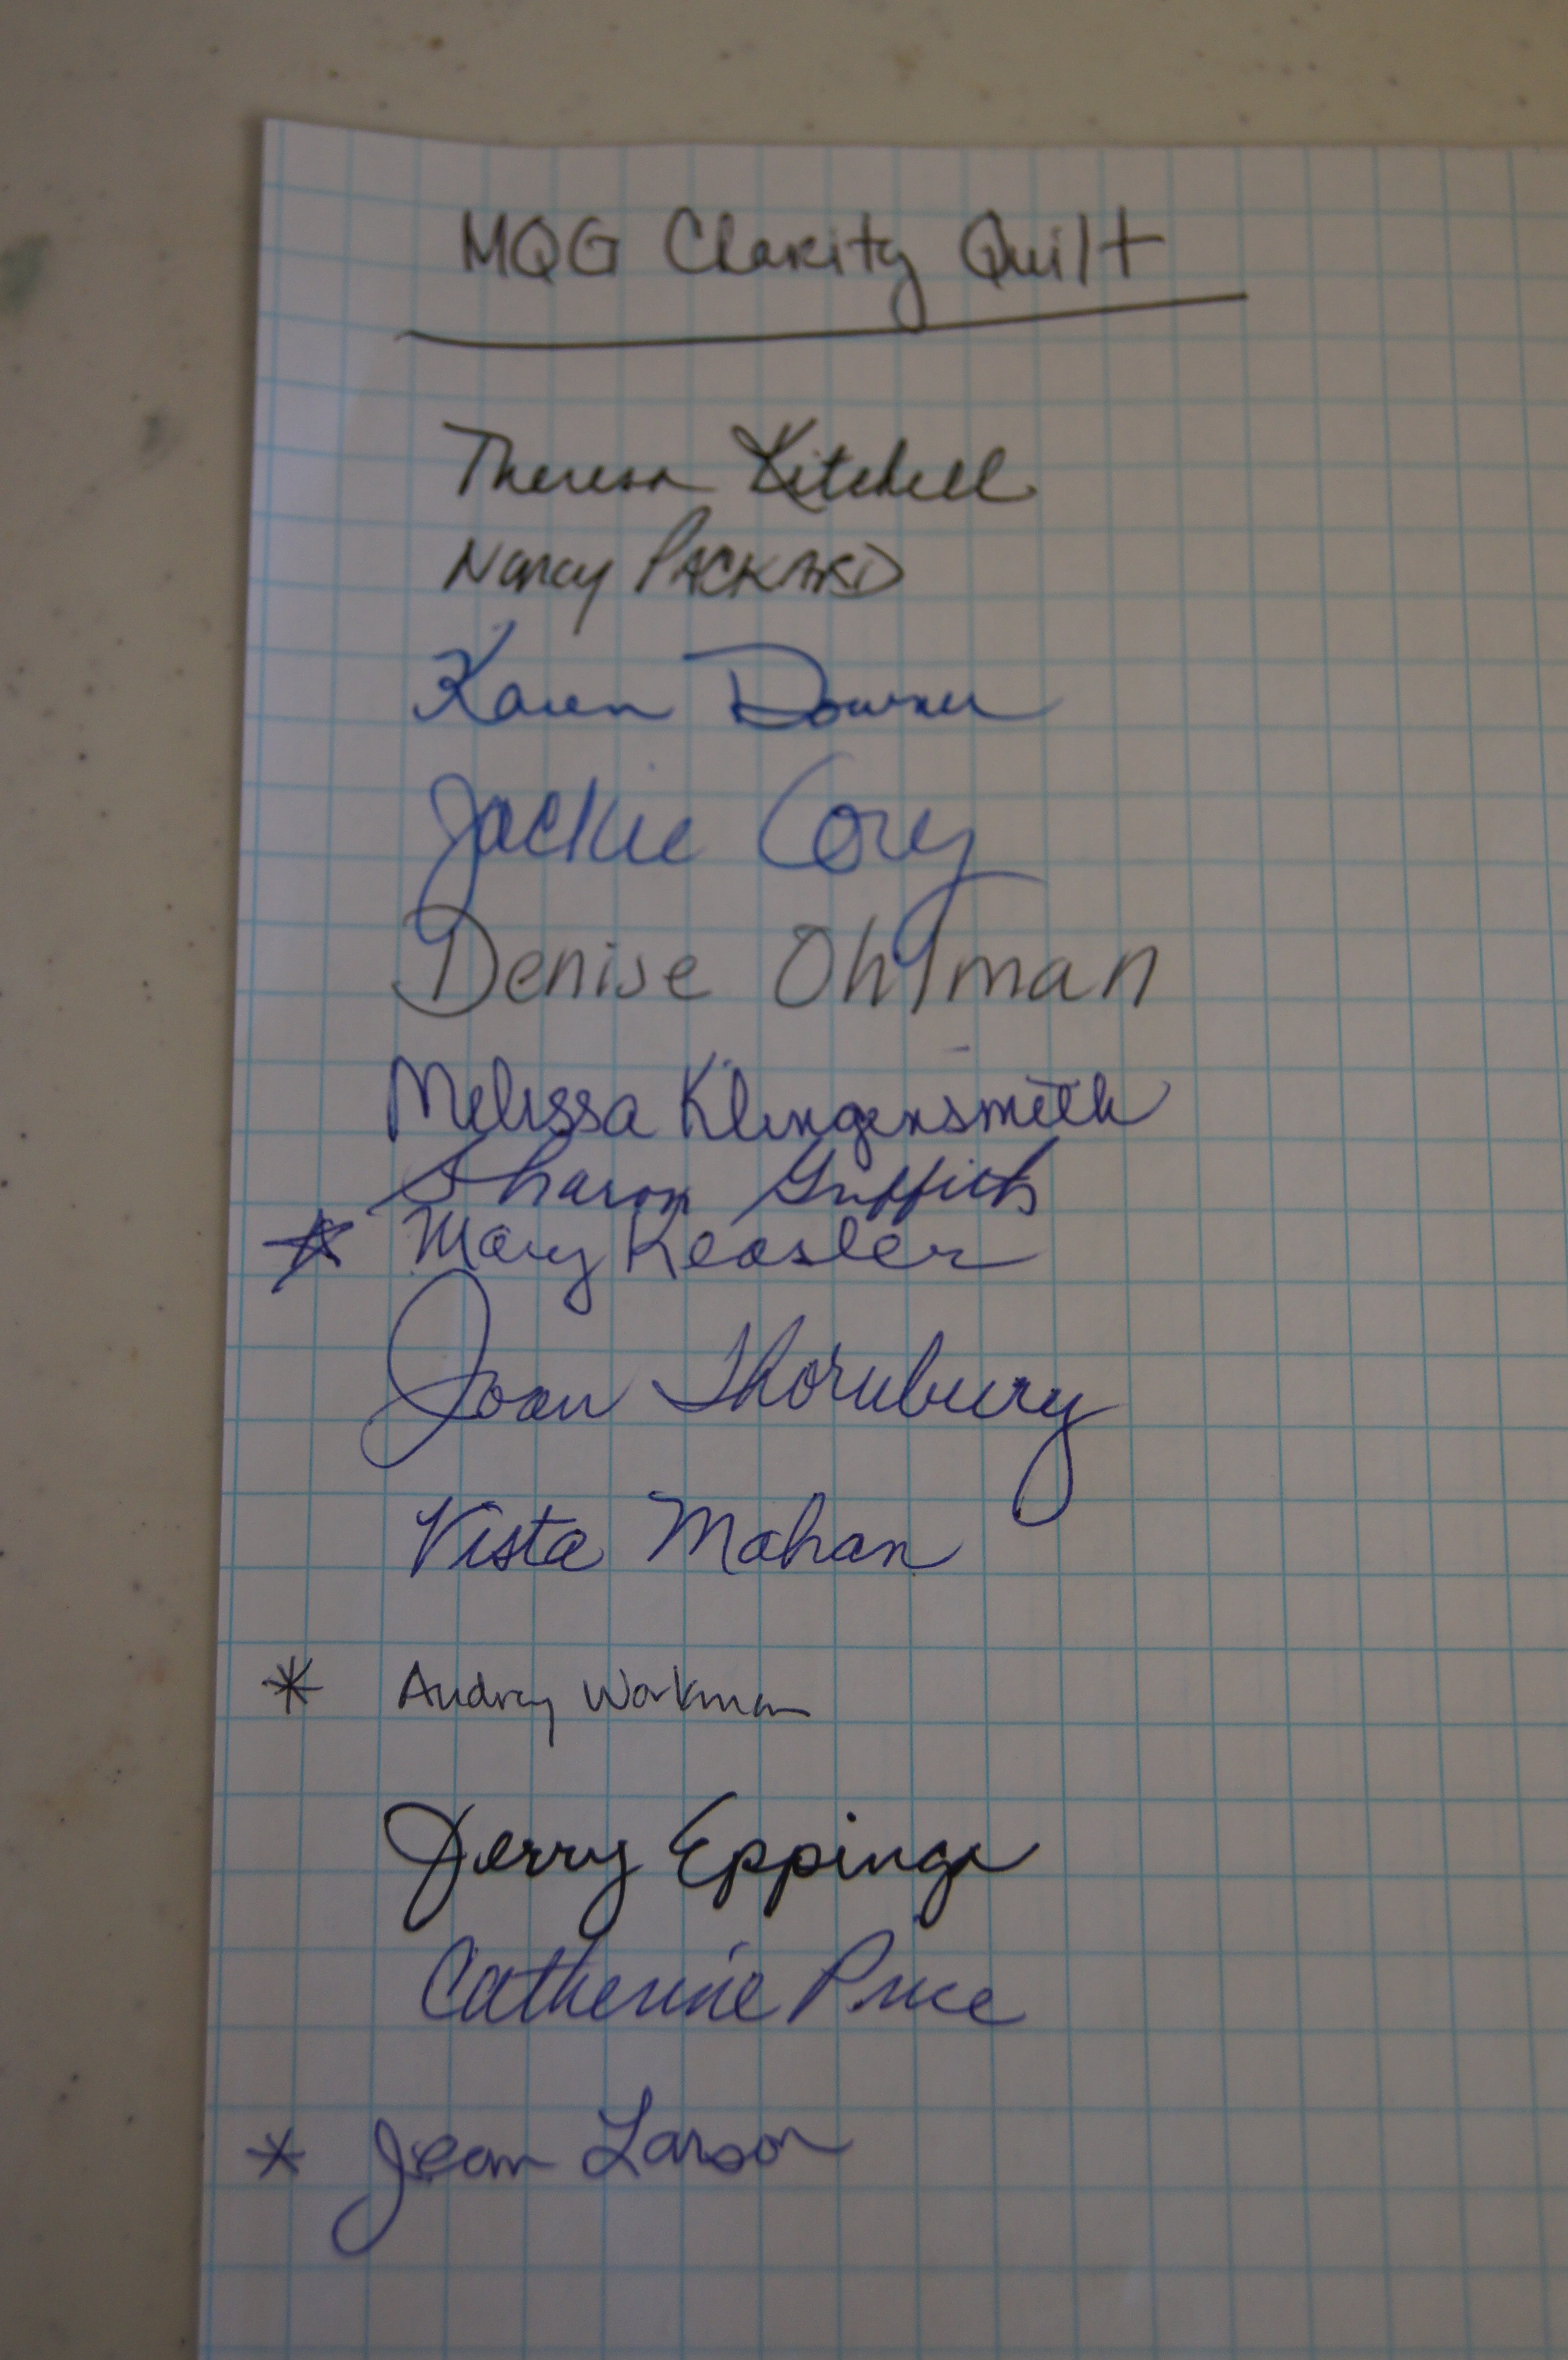 MQG Charity Quilt
Theresa Kitchell
Nancy PACKARD
Karen Downer
Jackie Cory
Denise Ohlman
Melissa Klingensmith
Sharon Griffith
* Mary Keasler
Joan Thornbury
Vista Mahan
* Audrey Workman
Jerry Eppinga
Catherine Price
* Jean Larson